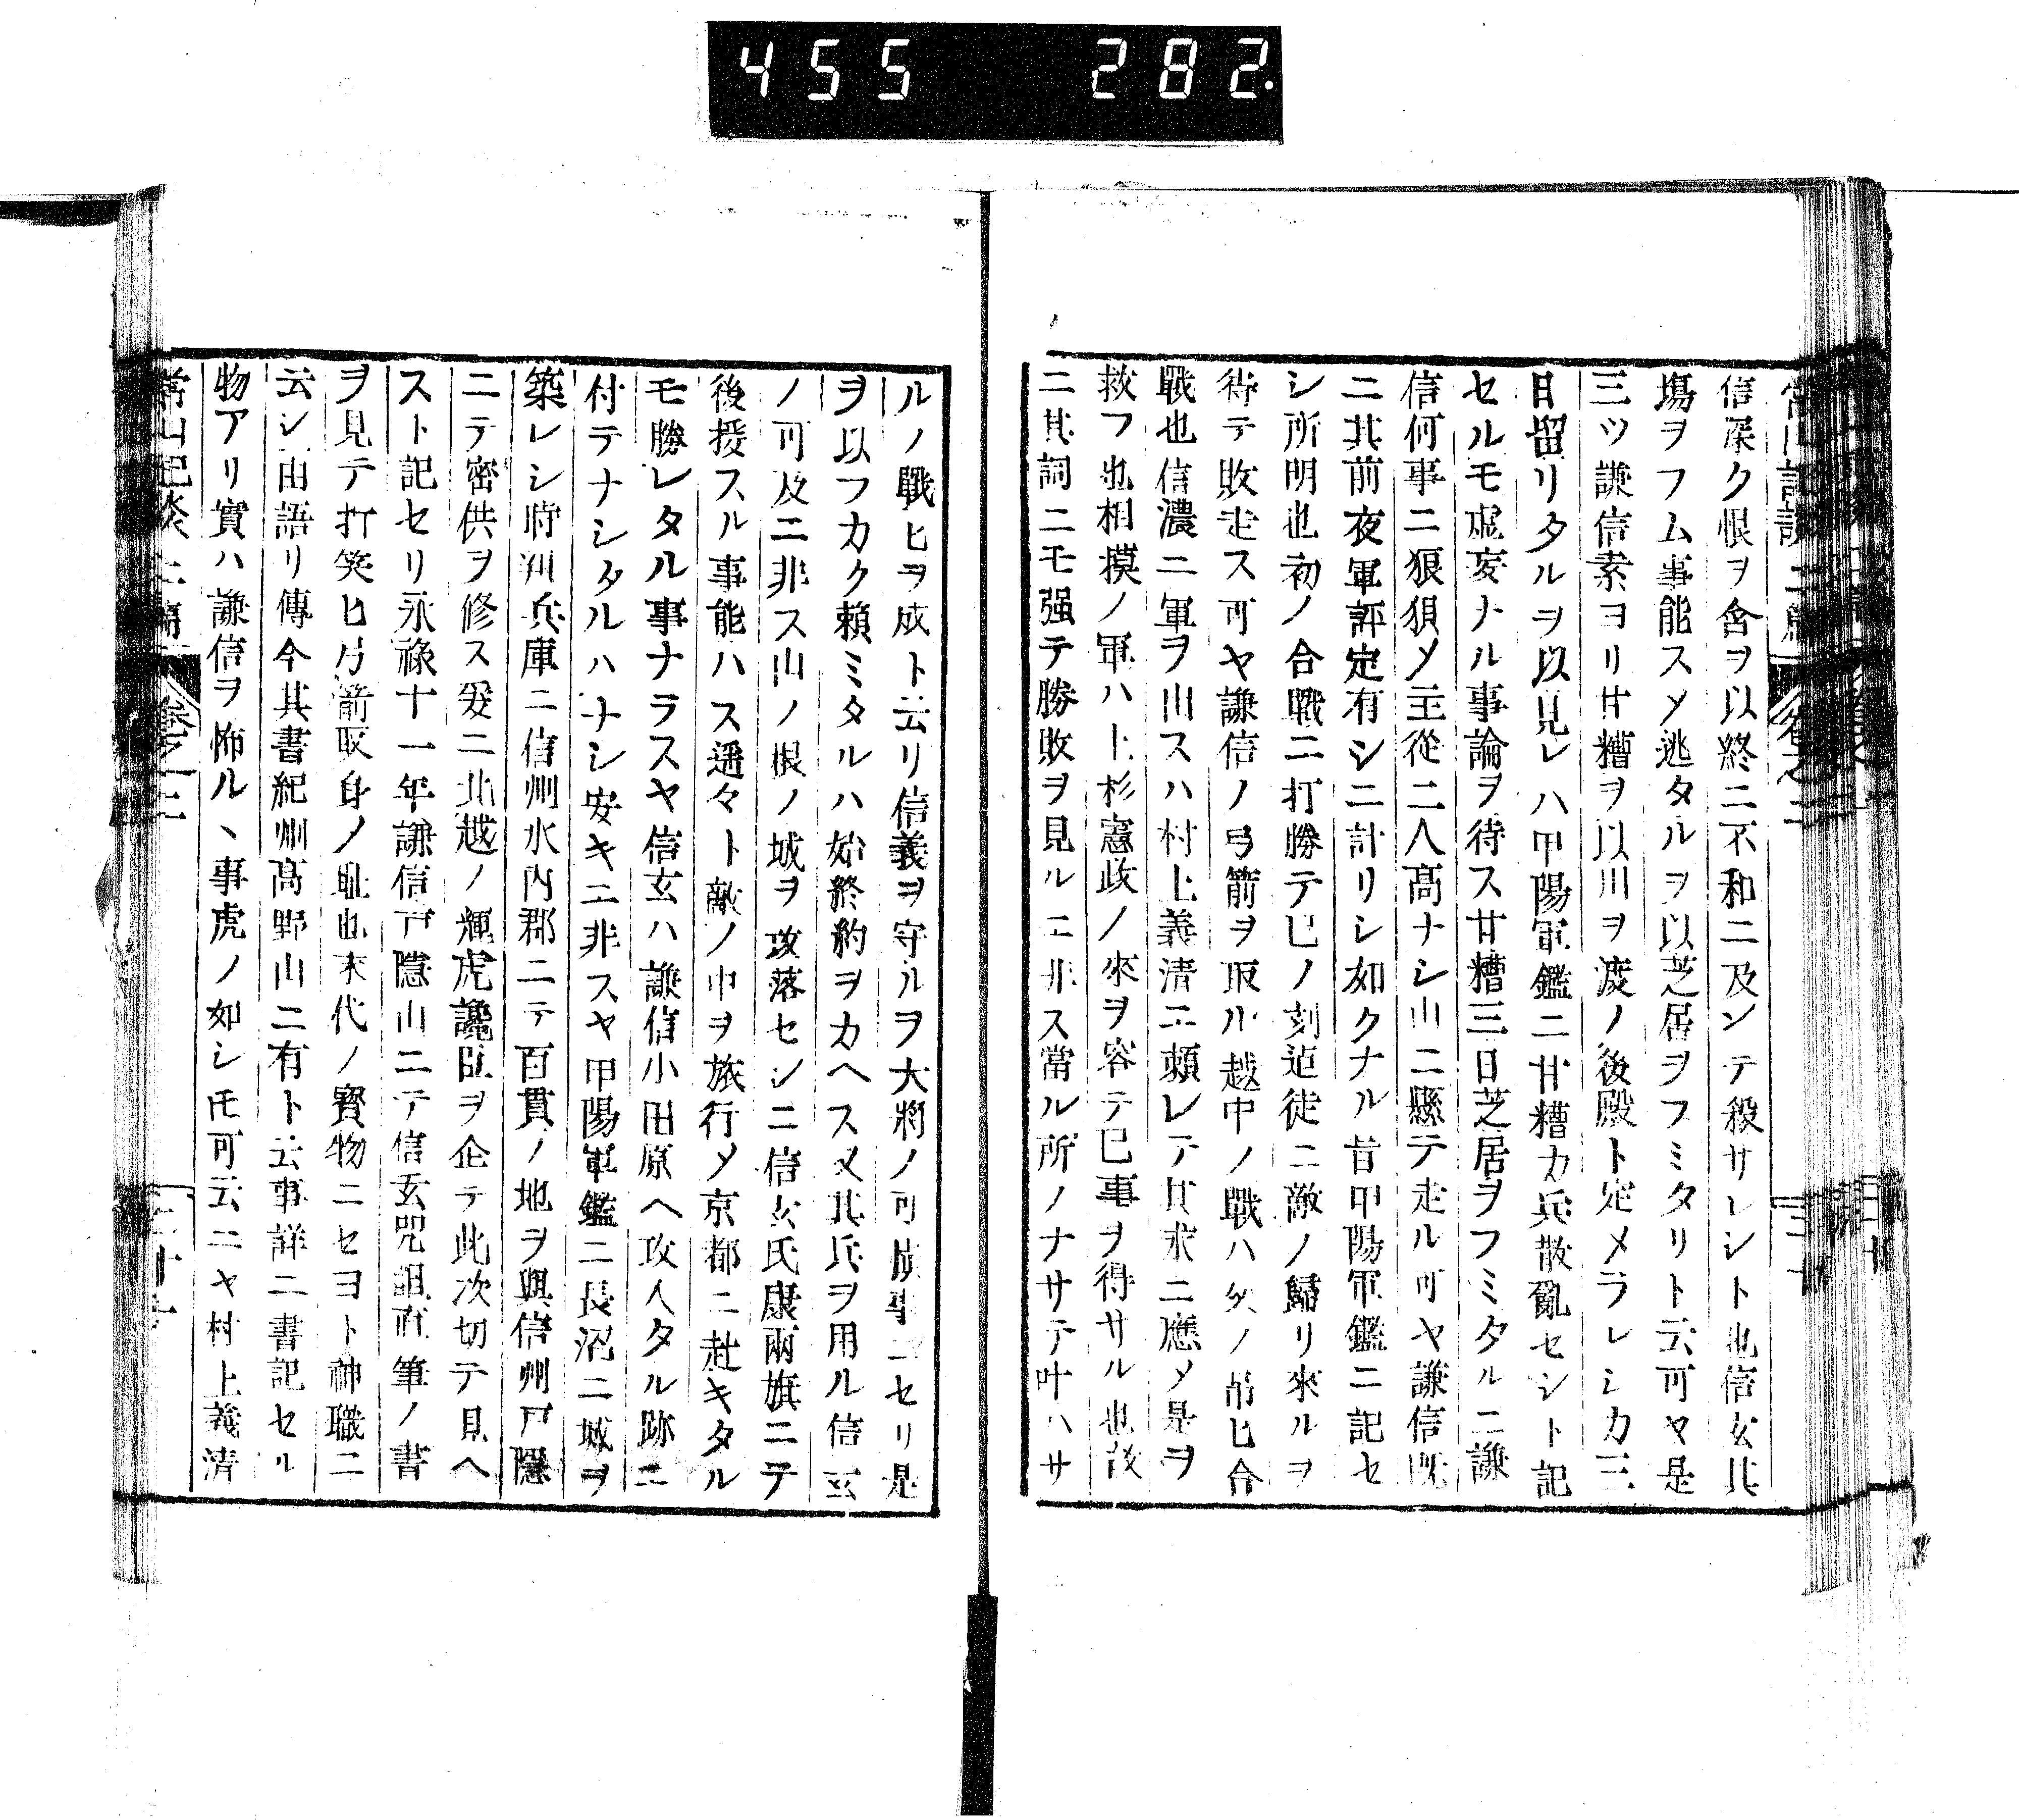 455 282.
信深ク恨ヲ含ヲ以終ニ不和ニ及ンテ殺サレシト也信玄其
塲ヲフム事能スメ逃タルヲ以芝居ヲフミタリト云可ヤ是
三ツ謙信素ヨリ甘糟ヲ以川ヲ渡ノ後殿ト定メラレシカ三
日留リタルヲ以見レハ甲陽軍鑑ニ甘糟カ兵散亂セシト記
セルモ虚妄ナル事論ヲ待ス甘糟三日芝居ヲフミタルニ謙
信何事ニ狼狽メ主從二人髙ナシ山ニ懸テ走ル可ヤ謙信既
ニ其前夜軍評定有シニ計リシ如クナル昔甲陽軍鑑ニ記セ
シ所明也初ノ合戰ニ打勝テ巳ノ刻迠徒ニ敵ノ歸リ來ルヲ
待テ敗走ス可ヤ謙信ノ弓箭ヲ取ル越中ノ戰ハ父ノ吊ヒ合
戰也信濃ニ軍ヲ出スハ村上義清ニ頼レテ其求ニ應メ是ヲ
救フ也相摸ノ軍ハ上杉憲政ノ來ヲ容テ已事ヲ得サル也故
ニ其詞ニモ强テ勝敗ヲ見ルニ非ス當ル所ノナサテ叶ハサ
ルノ戰ヒヲ成ト云リ信義ヲ守ルヲ大將ノ可成事ニセリ是
ヲ以フカク頼ミタルハ始終約ヲカヘス又其兵ヲ用ル信玄
ノ可及ニ非ス山ノ根ノ城ヲ攻落セシニ信玄氏康兩旗ニテ
後援スル事能ハス遥々ト敵ノ中ヲ旅行メ京都ニ赴キタル
モ勝レタル事ナラスヤ信玄ハ謙信小田原ヘ攻入タル跡ニ
付テナシタルハナシ安キニ非スヤ甲陽軍鑑ニ長沼ニ城ヲ
築レシ時判兵庫ニ信州水内郡ニテ百貫ノ地ヲ與信州戸隱
ニテ密供ヲ修ス爰ニ北越ノ輝虎讒臣ヲ企テ此次切テ見ヘ
スト記セリ永祿十一年謙信戸隱山ニテ信玄咒詛直筆ノ書
ヲ見テ打笑ヒ弓箭取身ノ耻也末代ノ寳物ニセヨト神職ニ
云シ由語リ傳今其書紀州髙野山ニ有ト云事詳ニ書記セル
物アリ實ハ謙信ヲ怖ルヽ事虎ノ如シ𪜈可云ニヤ村上義清
常山記談 二篇 卷之二